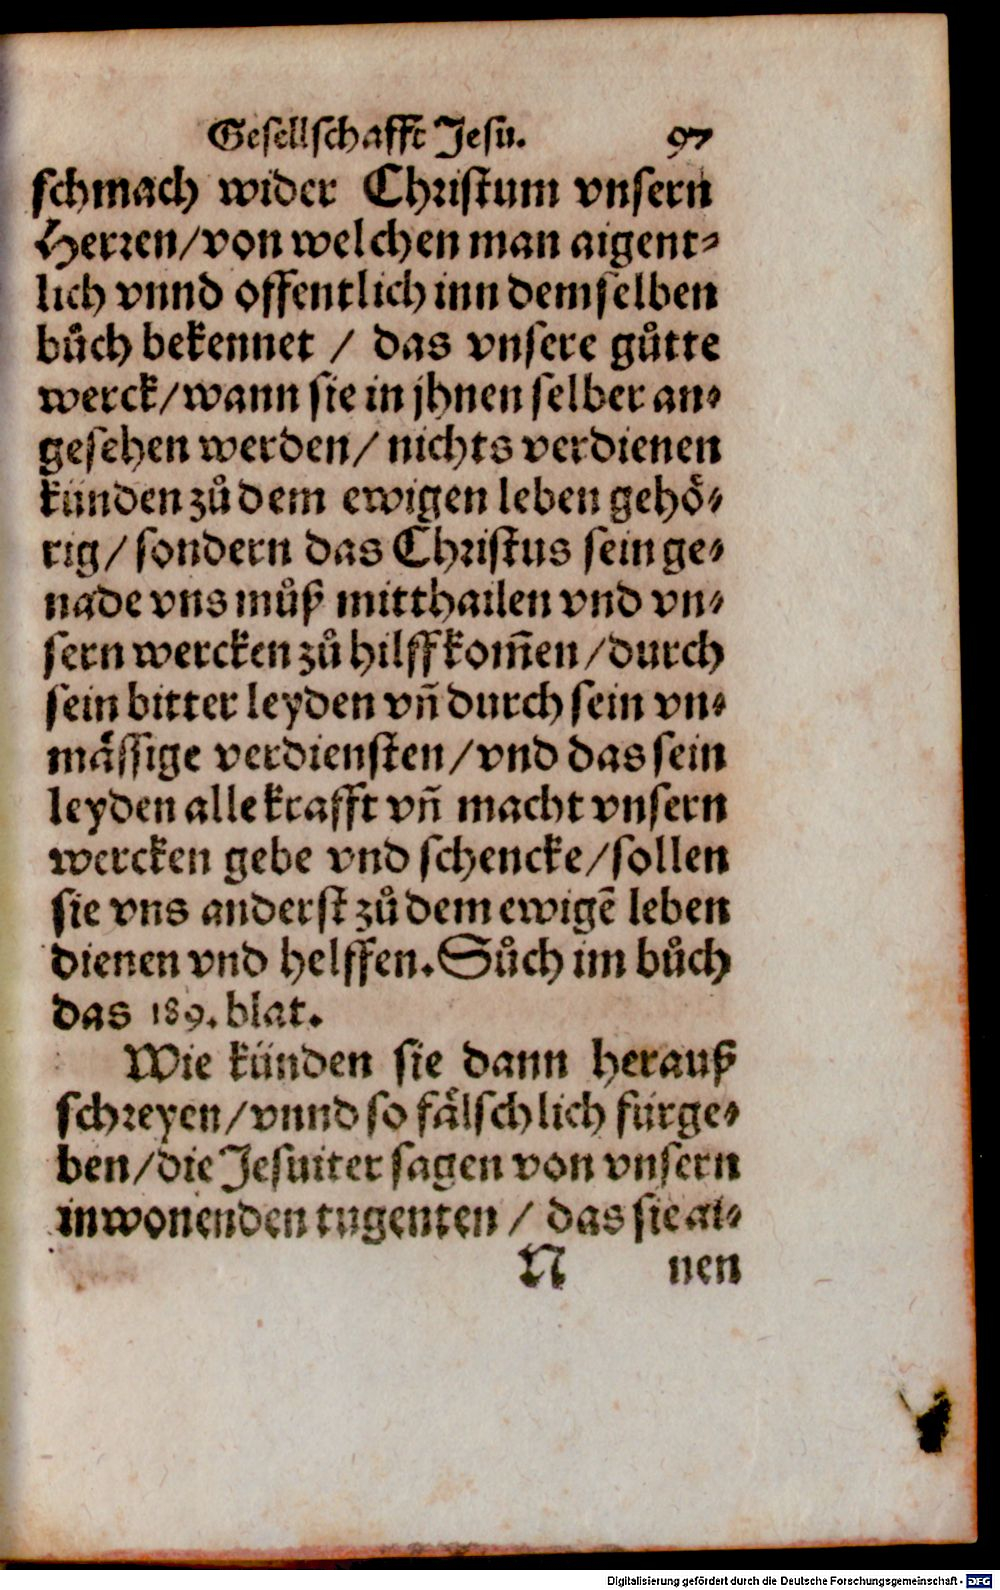 Gesellschafft Jesu. 97
schmach wider Christum vnsern
Herren/von welchen man aigent-
lich vnnd offentlich inn demselben
bůch bekennet / das vnsere gůtte
werck/wann sie in jhnen selber an-
gesehen werden/ nichts verdienen
künden zů dem ewigen leben gehö-
rig/ sondern das Christus sein ge-
nade vns můß mitthailen vnd vn-
sern wercken zů hilff kom̃en/durch
sein bitter leyden vñ durch sein vn-
mässige verdiensten/vnd das sein
leyden alle krafft vñ macht vnsern
wercken gebe vnd schencke/sollen
sie vns anderst zů dem ewigẽ leben
dienen vnd helffen. Sůch im bůch
das 189. blat.
Wie künden sie dann herauß
schreyen/vnnd so fälschlich fürge-
ben/die Jesuiter sagen von vnsern
inwonenden tugenten / das sie ai-
N nen
Digitalisierung gefördert durch die Deutsche Forschungsgemeinschaft - DFG